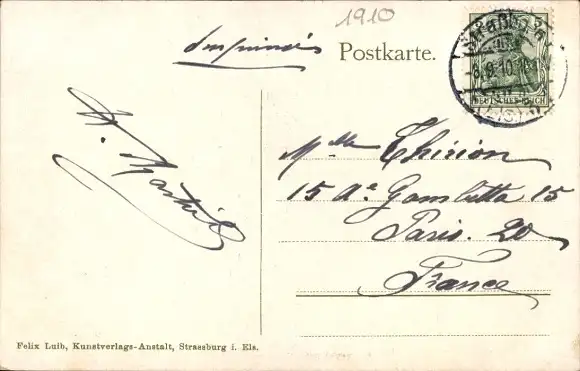 1910
Imprimés
Postkarte.
DEUTSCHES REICH
Mlle Thirion
15 Ae Gambetta 15
Paris. 20
France
Felix Luib, Kunstverlags-Anstalt, Strassburg i. Els.